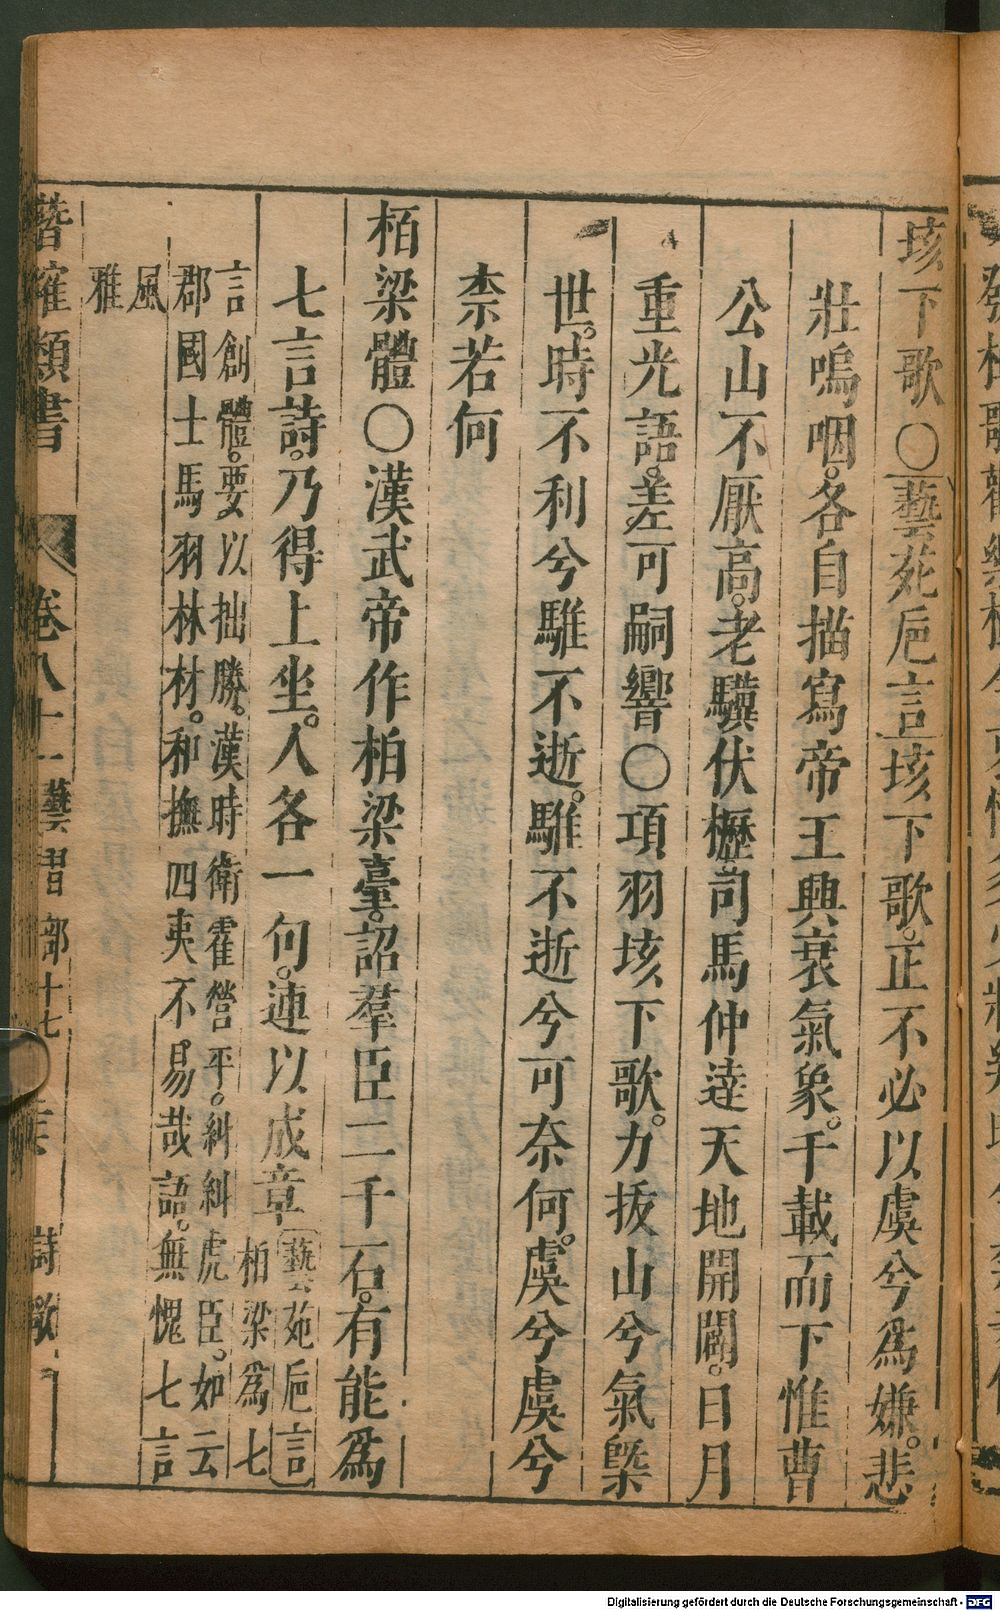 垓下歌〇藝苑巵言垓下歌。正不必以虞兮爲嫌。悲
壯嗚咽。各自描寫帝王興衰氣象。千載而下惟曹
公山不厭高。老驥伏櫪。司馬仲達天地開闢。日月
重光語。差可嗣響〇項羽垓下歌。力拔山兮氣槩
世。時不利兮騅不逝。騅不逝兮可奈何。虞兮虞兮
柰若何
栢梁體〇漢武帝作柏梁臺。詔羣臣二千石。有能爲
七言詩。乃得上坐。人各一句。連以成章藝苑巵言柏梁爲七
言創體。要以拙勝。漢時衛霍營平。糾糾虎臣。如云
郡國士馬羽林材。和撫四夷不易哉語。無愧七言
風
雅
卷八十一 藝習部十七 詩歌
Digitalisierung gefördert durch die Deutsche Forschungsgemeinschaft - DFG